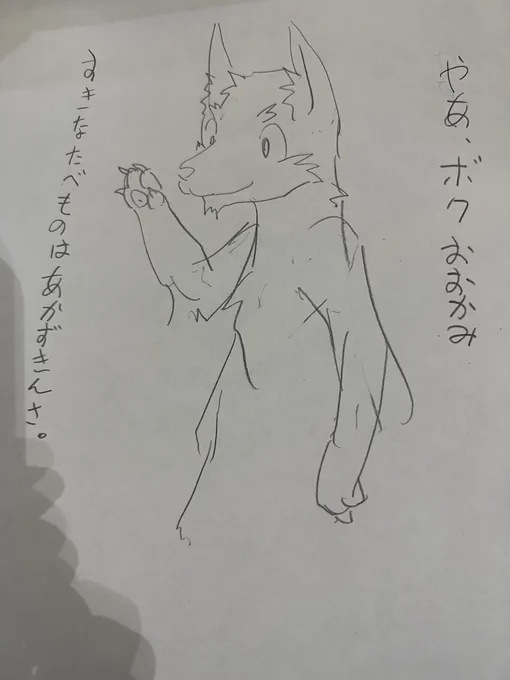 やあ、ボクおおかみ
すきなたべものはあかずきんさ。